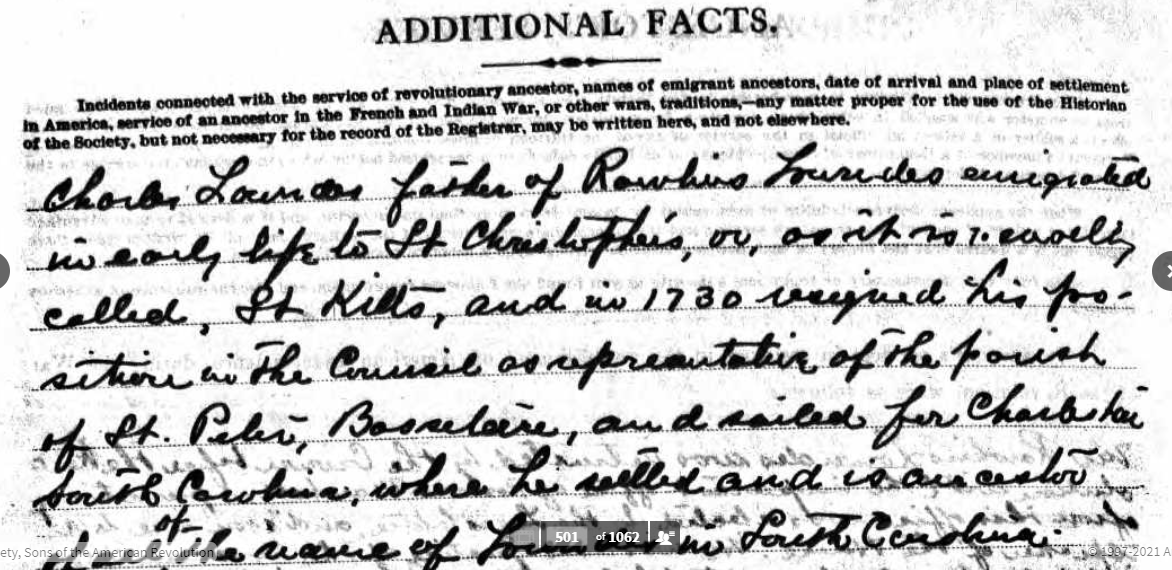 ADDITIONAL FACTS.
Incidents connected with the service of revolutionary ancestor, names of emigrant ancestors, date of arrival and place of settlement
in America, service of an ancestor in the French and Indian War, or other wars, traditions,—any matter proper for the use of the Historian
of the Society, but not necessary for the record of the Registrar, may be written here, and not elsewhere.
Charles Lowndes father of Rawlins Lowndes emigrated
in early life to St Christophers, or, as it is usually
called, St Kitts, and in 1730 resigned his po-
sition in the Council as representative of the parish
of St. Peter, Basseterre, and sailed for Charleston
South Carolina, where he settled and is ancestor
of
the name of in South Carolina.
501 of 1062
ety, Sons of the American Revolution
© 1997-2021 A